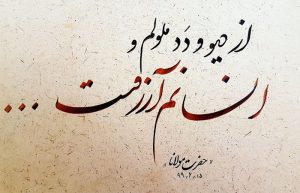 از دیو و دَد ملولم و
انسانم آرزوست ...
«حضرت مولانا»
۹۹،۲،۱۵